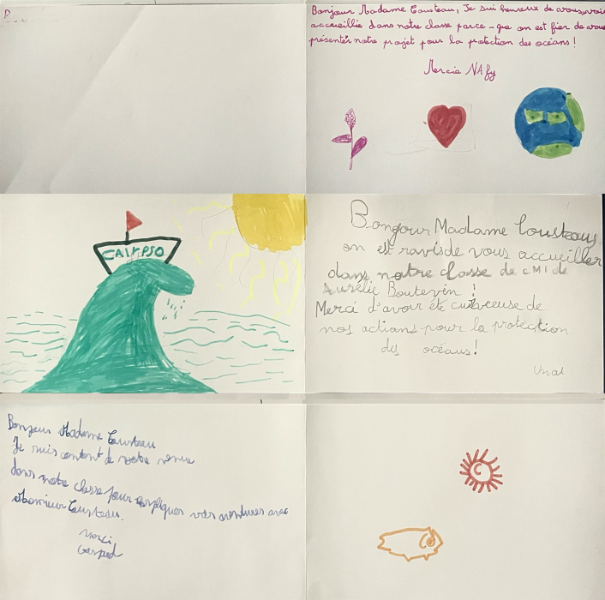 Bonjour Madame Cousteau, Je sui heureuse de vous voir
accueillie dans notre classe parce-que on est fier de vous
présenter notre projet pour la protection des océans !
Mercie NAfy
CALYPSO
Bonjour Madame Cousteau
on est ravis de vous accueillir
dans notre classe de CM1 de
Aurélie Boutevin !
Merci d'avoir été curieuse de
nos actions pour la protection
des océans !
Bonjour Madame Cousteau
Je suis content de votre venue
dans notre classe pour expliquer vos aventures avec
Monsieur Cousteau.
merci
Gaspard